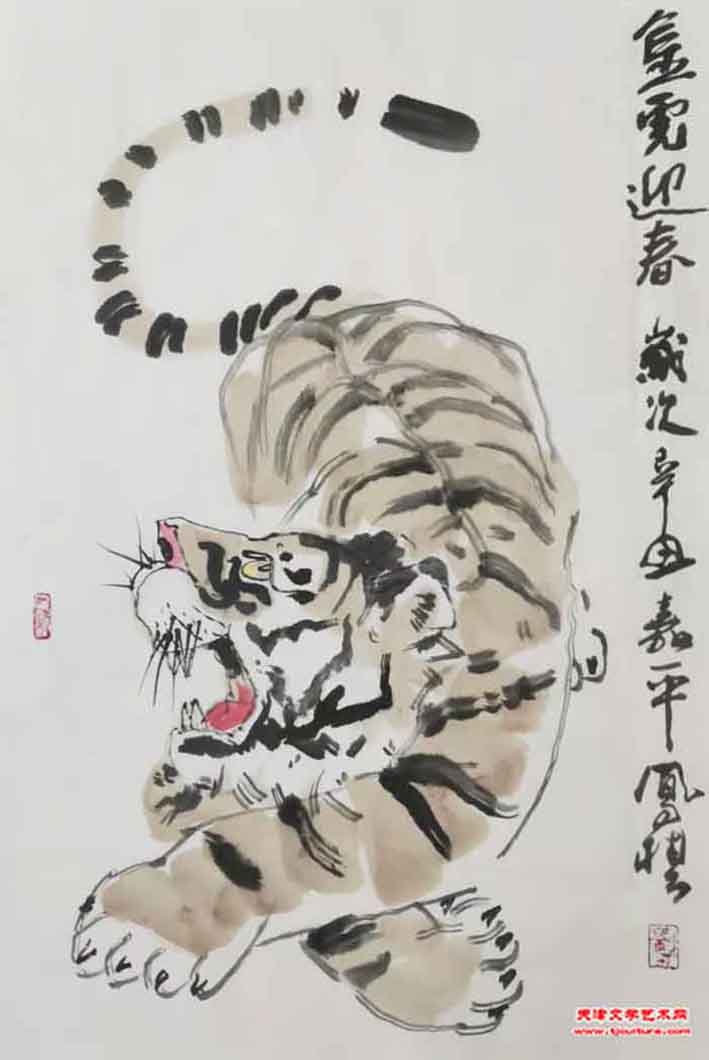 金虎迎春 歲次辛丑嘉平鳳祺
天津文学艺术网
www.tjculture.com